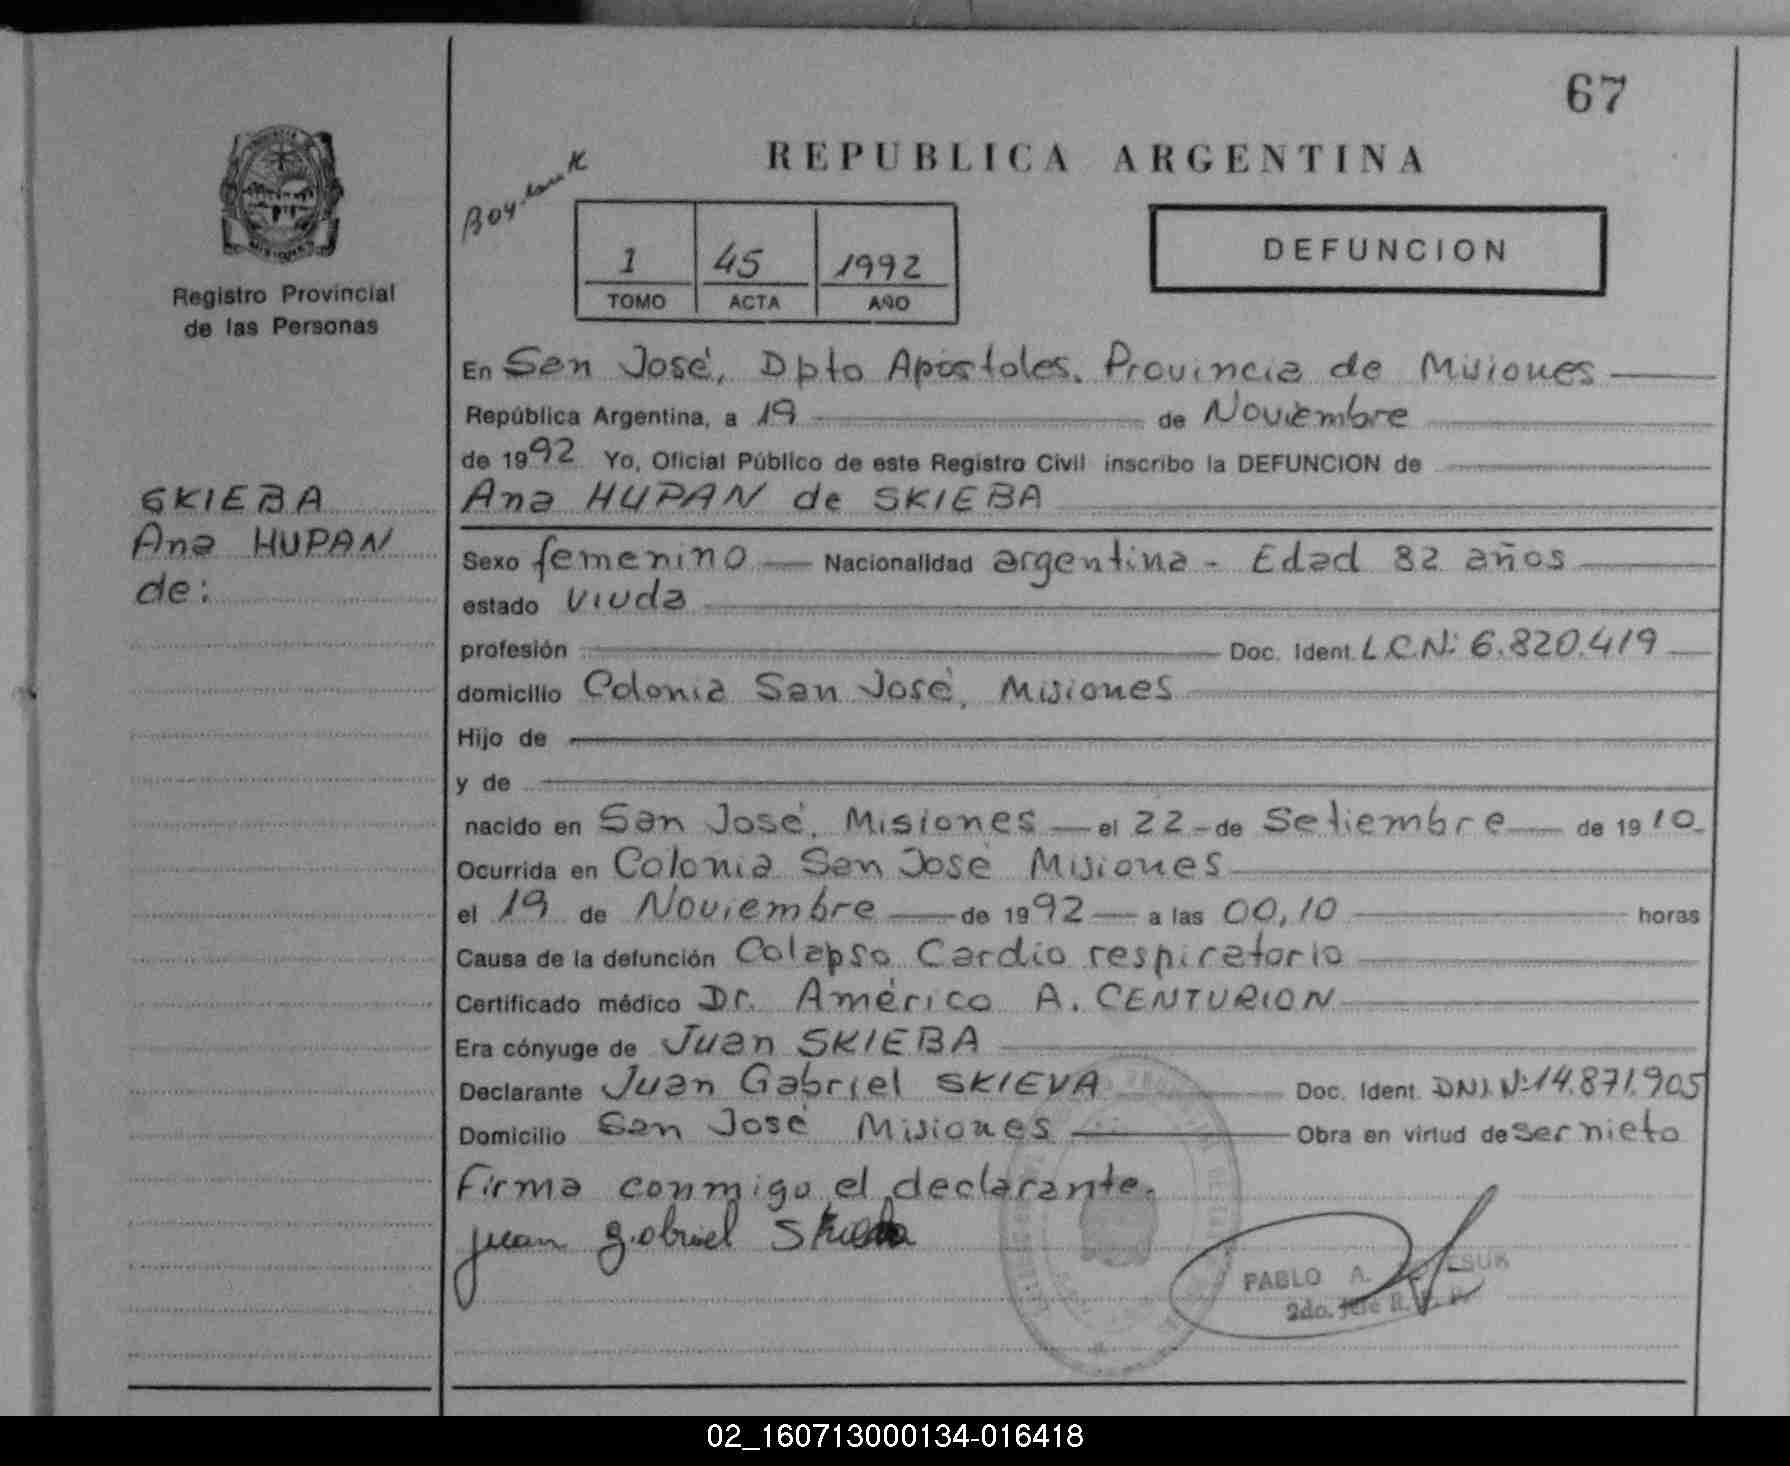 67
REPUBLICA ARGENTINA
1 45 1992
TOMO ACTA AÑO
DEFUNCION
Registro Provincial
de las Personas
SKIEBA
Ana HUPAN
de:
En San José, Dpto Apóstoles. Provincia de Misiones
República Argentina, a 19 de Noviembre
de 1992 Yo, Oficial Público de este Registro Civil inscribo la DEFUNCION de
Ana HUPAN de SKIEBA
Sexo femenino Nacionalidad argentina - Edad 82 años
estado viuda
profesión Doc. Ident. L.C.N: 6.820.419
domicilio Colonia San José, Misiones
Hijo de
y de
nacido en San José, Misiones el 22 de Setiembre de 1910
Ocurrida en Colonia San José Misiones
el 19 de Noviembre de 1992 a las 00,10 horas
Causa de la defunción Colapso Cardio respiratorio
Certificado médico Dr. Américo A. CENTURION
Era cónyuge de Juan SKIEBA
Declarante Juan Gabriel SKIEVA Doc. Ident. DNI. N:14.871.905
Domicilio San José Misiones Obra en virtud de ser nieto
Firma conmigo el declarante.
juan gabriel
PABLO A.
2do. Jefe R. P. P.
02_160713000134-016418